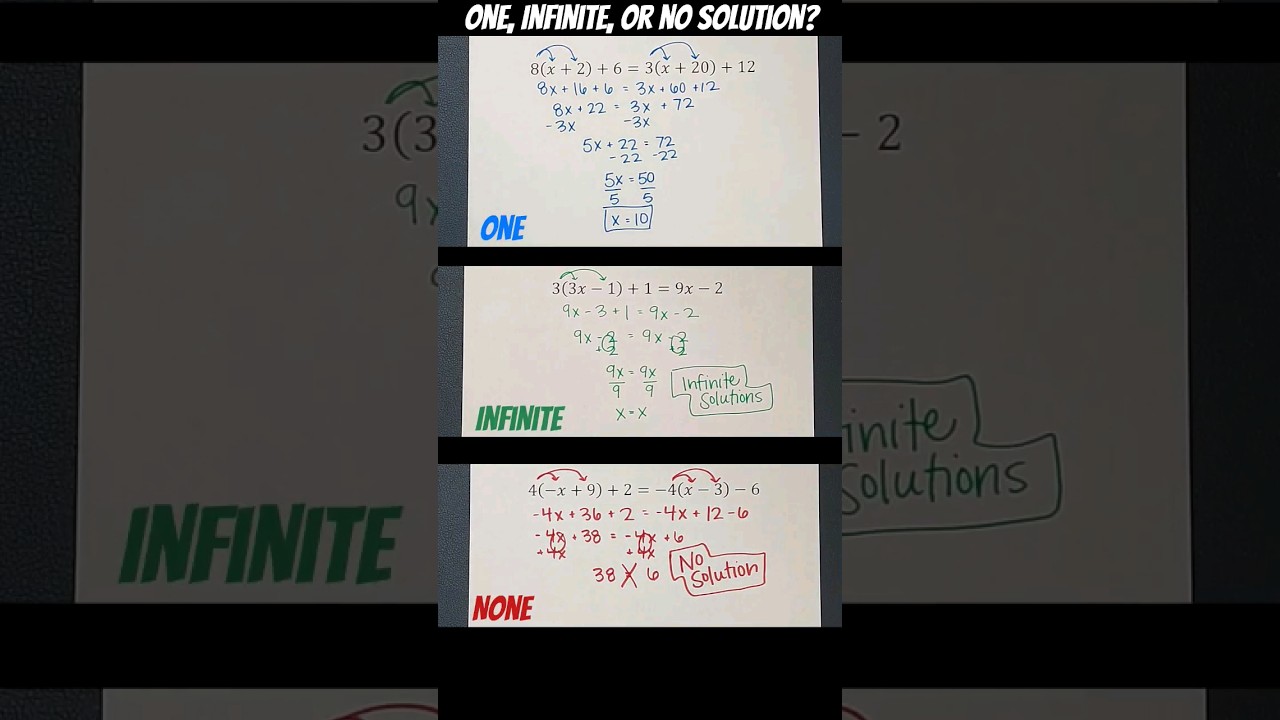 ONE, INFINITE, OR NO SOLUTION?
8(x + 2) + 6 = 3(x + 20) + 12
8x + 16 + 6 = 3x + 60 + 12
8x + 22 = 3x + 72
-3x -3x
5x + 22 = 72
-22 -22
5x = 50
5 5
x = 10
ONE
3(3x − 1) + 1 = 9x − 2
9x - 3 + 1 = 9x - 2
9x - 2 = 9x - 2
+2 +2
9x = 9x
9 9
x = x
Infinite
Solutions
INFINITE
4(−x + 9) + 2 = −4(x − 3) − 6
-4x + 36 + 2 = -4x + 12 - 6
-4x + 38 = -4x + 6
+4x +4x
38 = 6
No
Solution
NONE
3(3
− 2
9x
inite
Solutions
INFINITE